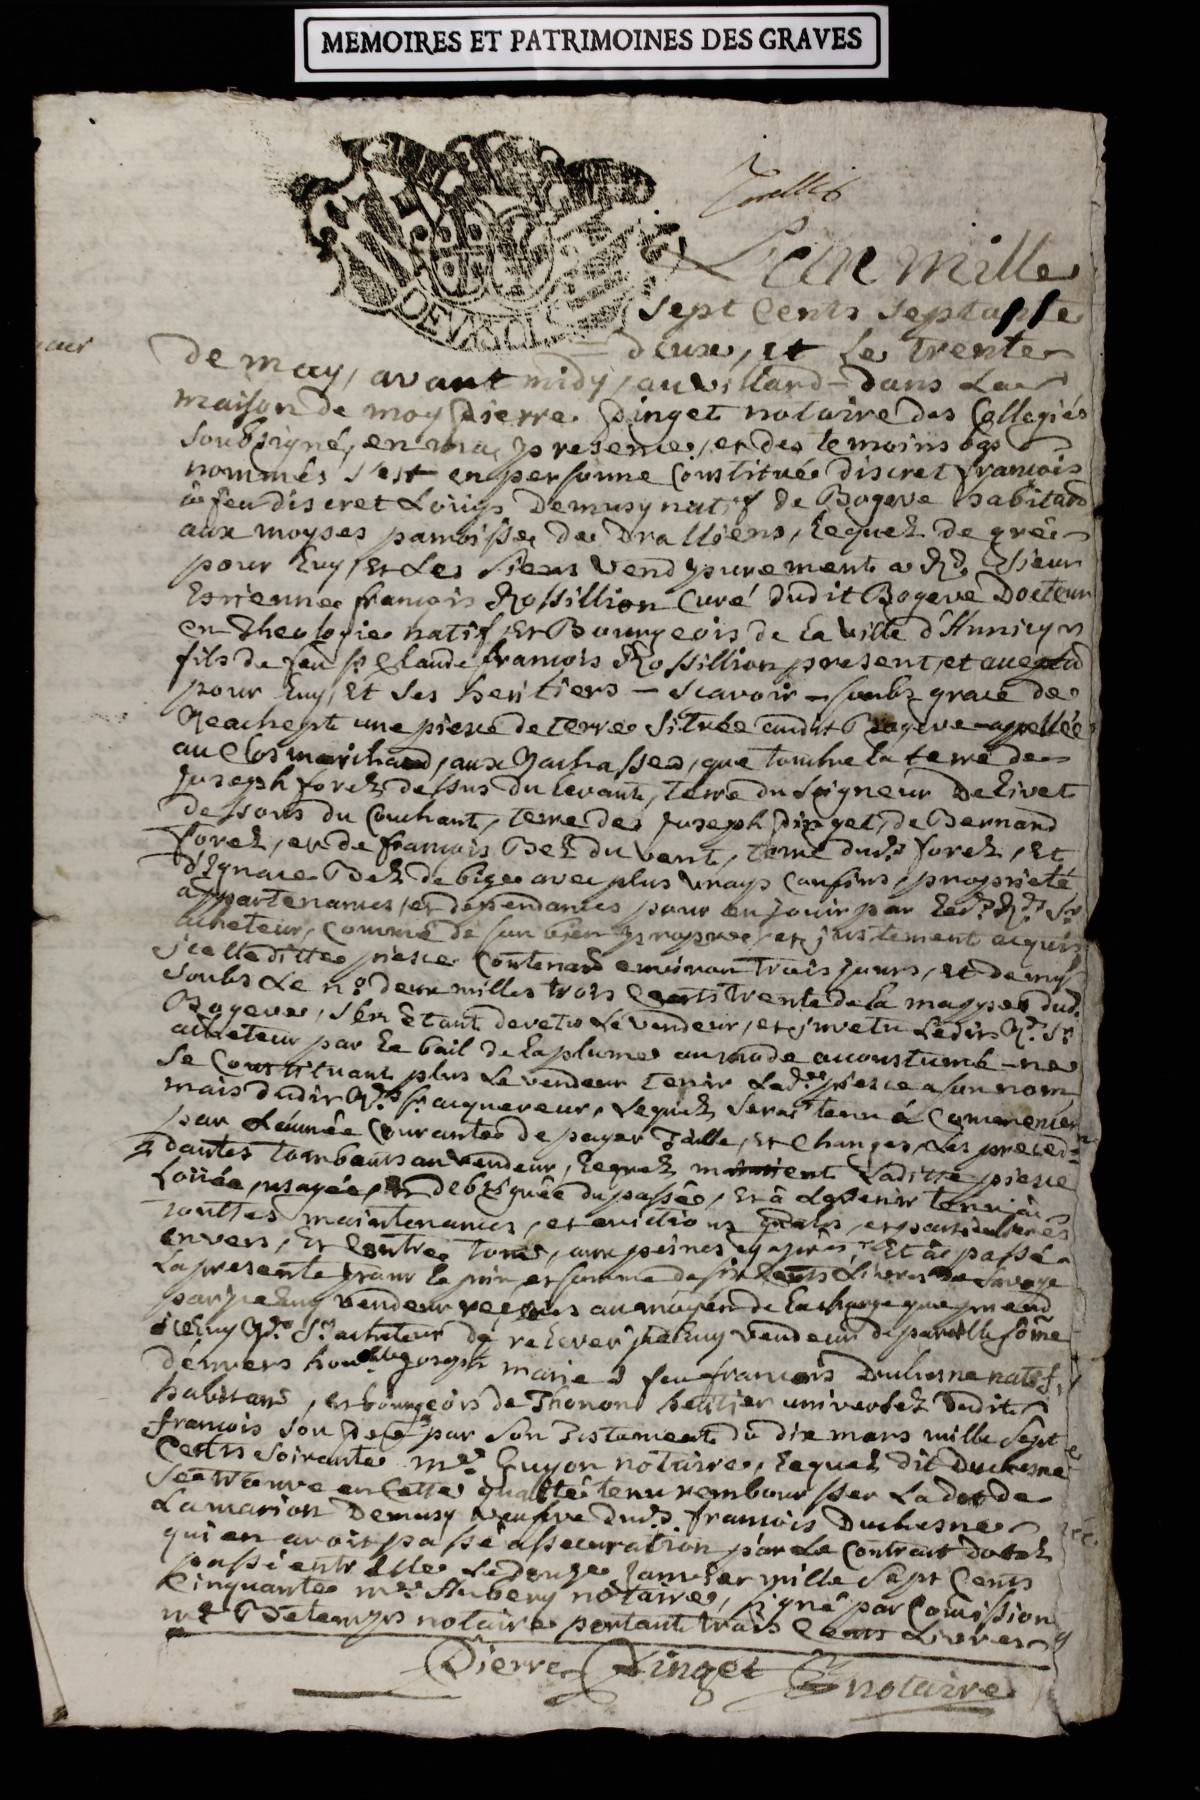 MEMOIRES ET PATRIMOINES DES GRAVES
L'an mille
sept Cents septante
deux, et le trente
de may, avant midy, au villard dans la
maison de moy Pierre Pinget notaire des Collegiés
soubsigné, en ma presence, et des temoins bas
nommés s'est en personne Constitué discret françois
à feu discret Loüys Demusy natif de Bogeve habitant
aux moyses paroisse de Dralliens, lequel de gré
pour luy, et Les siens vend purement a Rd. sieur
Estienne françois Rossillion Curé dudit Bogeve Docteur
en Theologie natif et Bourgeois de la ville d'Annicy
fils de feu sr Claude françois Rossillion present, et
pour luy, Et ses heritiers – scavoir – soubz grace de
Reachept une piece de terre située audit Bogeve appellée
au Clos marichand, aux que touche la terre de
Joseph forel dessus du levant, terre du seigneur De livet
dessous du Couchant, terre de Joseph Pinget, de Bernard
forel, et de françois Bel du vent, terre dudt forel, Et
d'Ignace Bel de bize avec plus vrays Confins, proprieté
appartenances, et dependances pour en jouir par ledt Rd Sr
acheteur, Comme de son bien propre, et justement acquis
jcelle ditte piece Contenant environ trois jours, et demy
soubs Le no deux milles trois Cents trente de la mappe dud.
Bogeve, s'en étant devetu Le vendeur, et jnvetu Ledit Rd Sr
acheteur par le bail de la plume au mode accoustumé – ne
se Constituant plus Le vendeur tenir Ladte piece a son nom
mais dudit Rd sr acquereur, Lequel sera tenu à Commencer
par L'année Courante de payer Taille, et Charges, Les preced
dantes tombants au vendeur, lequel maintient Laditte piece
Loüée, usagée, et du passé, Et à L'avenir tenu à
touttes maintenances, et evictions et particulieres
envers, Et Contre tous, aux peines Et a passé
La presente pour le prix et somme de six Cents Livres de Savoye
par jceluy vendeur au moyen de la charge que prend
Rd Sr acheteur de relever jceluy vendeur de pareille sôme
denvers Joseph marie à feu françois Duchesne natif,
habitant, et bourgeois de Thonon heritier universel dudit
françois son pere par son Testament du dix mars mille sept
Cents soixante me Guyon notaire, lequel dit Duchesne
se trouve en Cette qualité tenu rembourser La dot de
La marion Demusy veufve dudt françois Duchesne
qui en avoit passé assecuration par Le Contract dotal
passé entr'Elle Le douze Janvier mille sept Cents
Cinquante me Aubery notaire, signé par Comission
me Betemps notaire portant trois Cents Livres
Pierre Pinget notaire